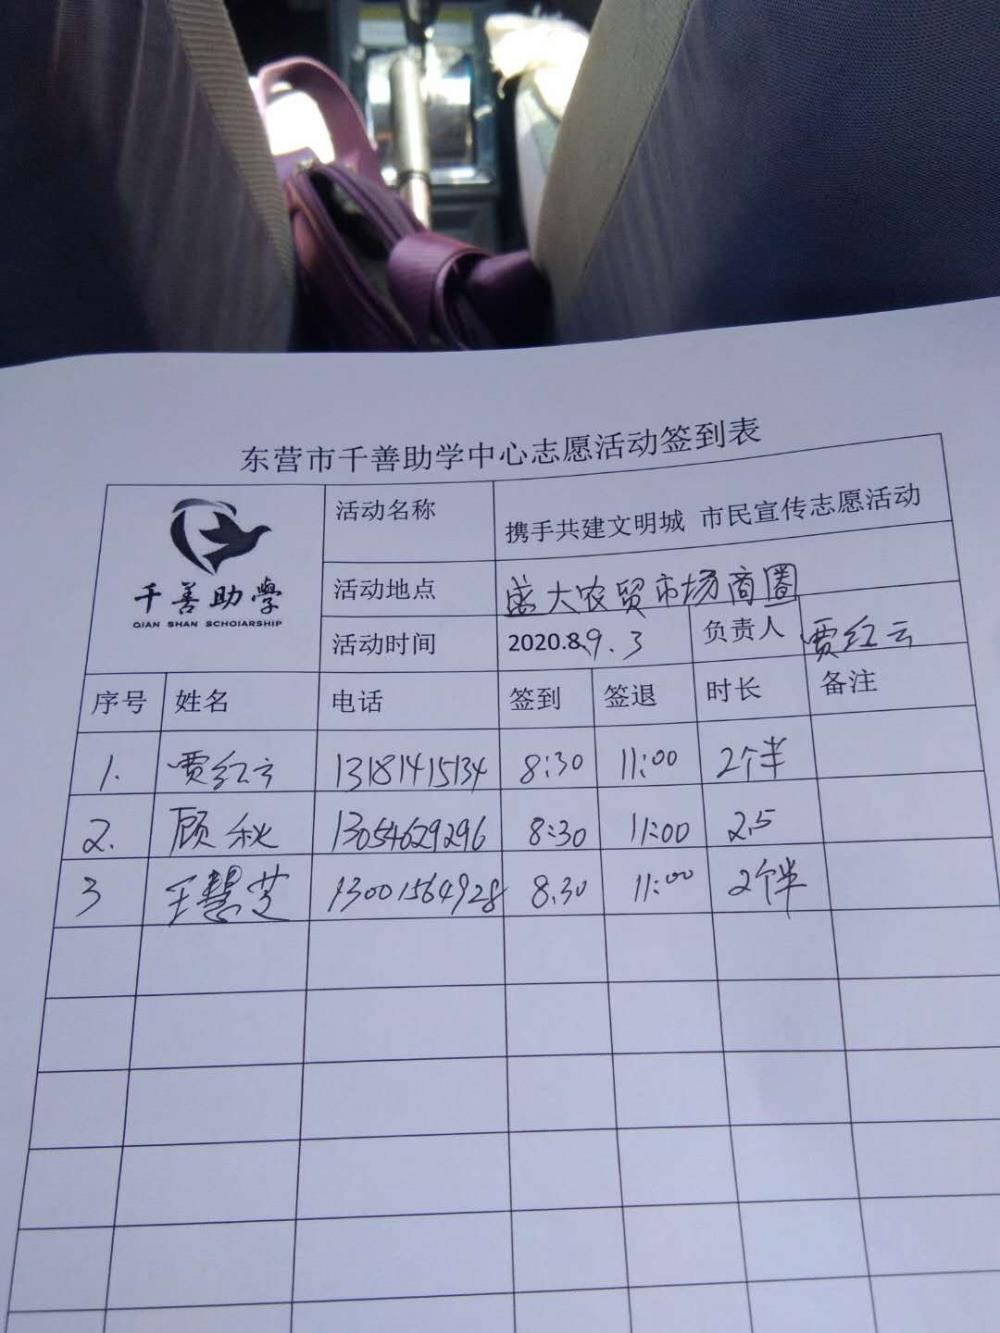 东营市千善助学中心志愿活动签到表
千善助學
QIAN SHAN SCHOIARSHIP
活动名称 携手共建文明城 市民宣传志愿活动
活动地点 盛大农贸市场商圈
活动时间 2020.8.9.3 负责人 贾红云
序号 姓名 电话 签到 签退 时长 备注
1. 贾红云 13181415134 8:30 11:00 2个半
2. 顾秋 13054629296 8:30 11:00 2.5
3 王慧芝 13001564928 8.30 11:00 2个半